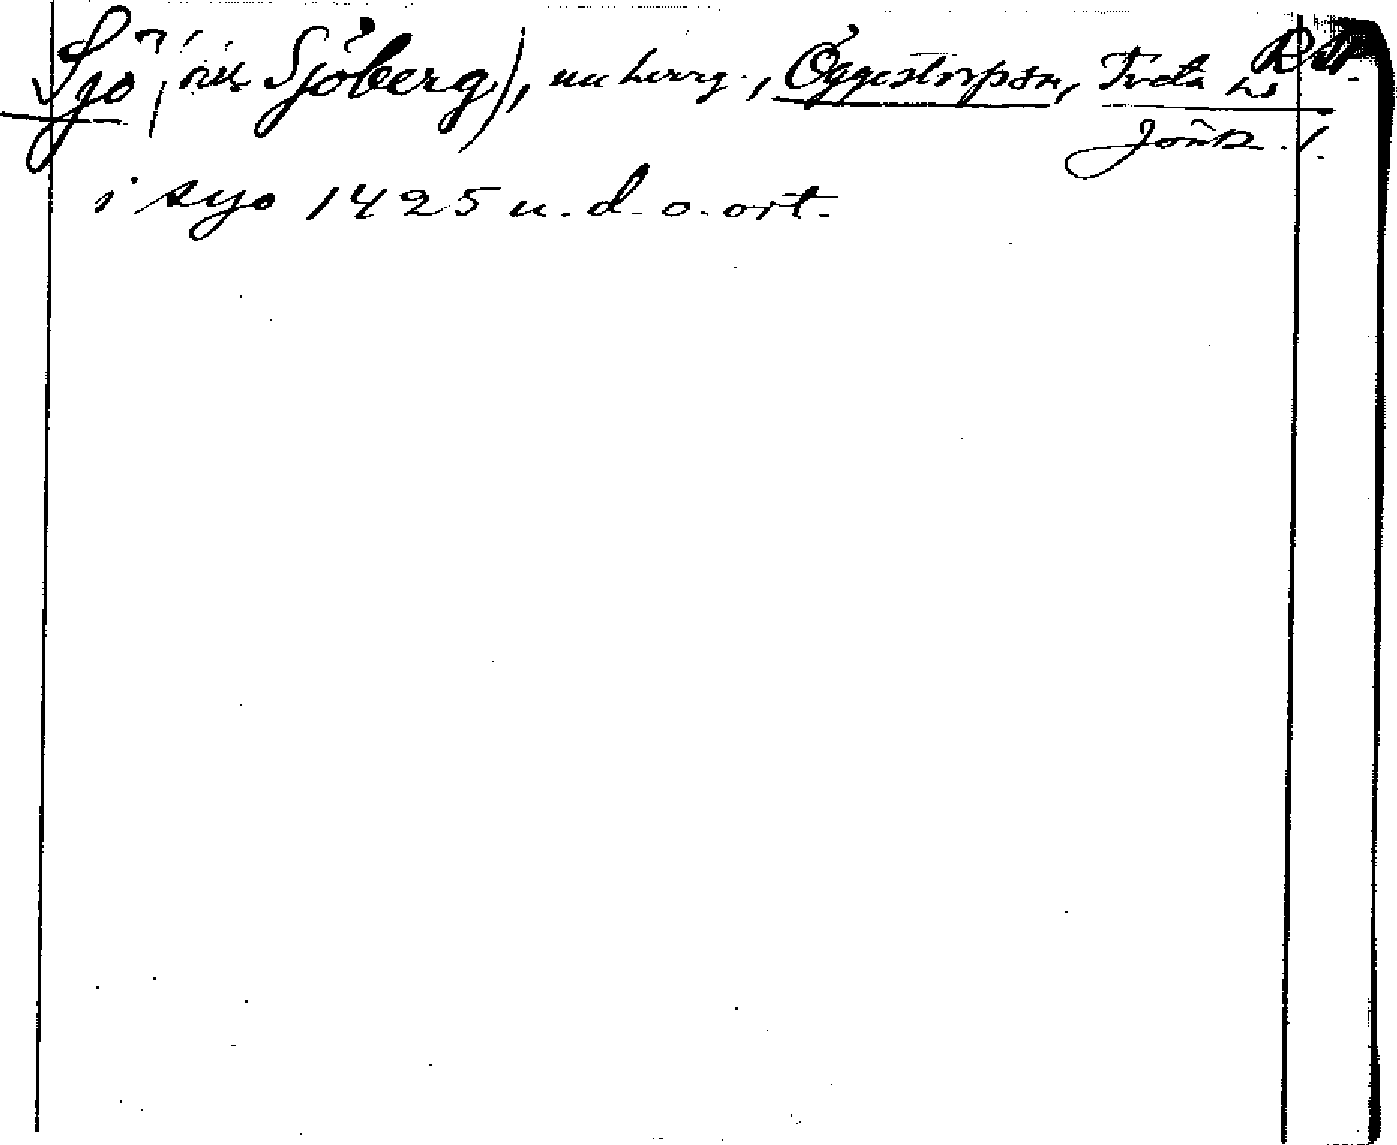 Sjö (nu Sjöberg), nu herrg., Öggestorps sn, Tveta hd RA
Jönk. l.
i syo 1425 u. d. o. ort.